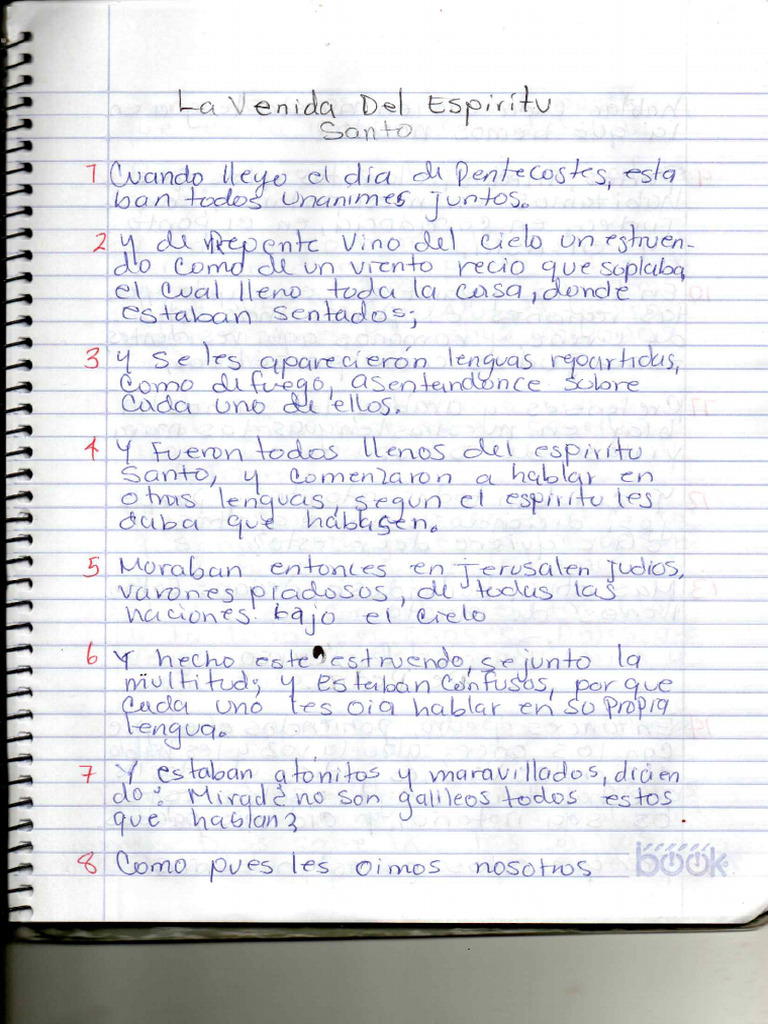 La Venida Del Espiritu
Santo
1 Cuando llego el dia de Pentecostes, esta
ban todos unanimes juntos.
2 y de Repente vino del cielo un estruen-
do como de un viento recio que soplaba,
el cual lleno toda la casa, donde
estaban sentados;
3 Y se les aparecierón lenguas repartidas,
como de fuego, asentandonce sobre
cada uno de ellos.
4 Y Fueron todos llenos del espiritu
santo, y comenzaron a hablar en
otras lenguas, segun el espiritu les
daba que hablasen.
5 Moraban entonces en jerusalen judios,
varones piadosos, de todas las
naciones bajo el cielo
6 Y hecho este estruendo, se junto la
multitud; y estaban confusos, por que
cada uno les oia hablar en su propia
lengua.
7 Y estaban atonitos y maravillados, dicien
do: Mirad ¿no son galileos todos estos
que hablan?
8 Como pues les oimos nosotros
book